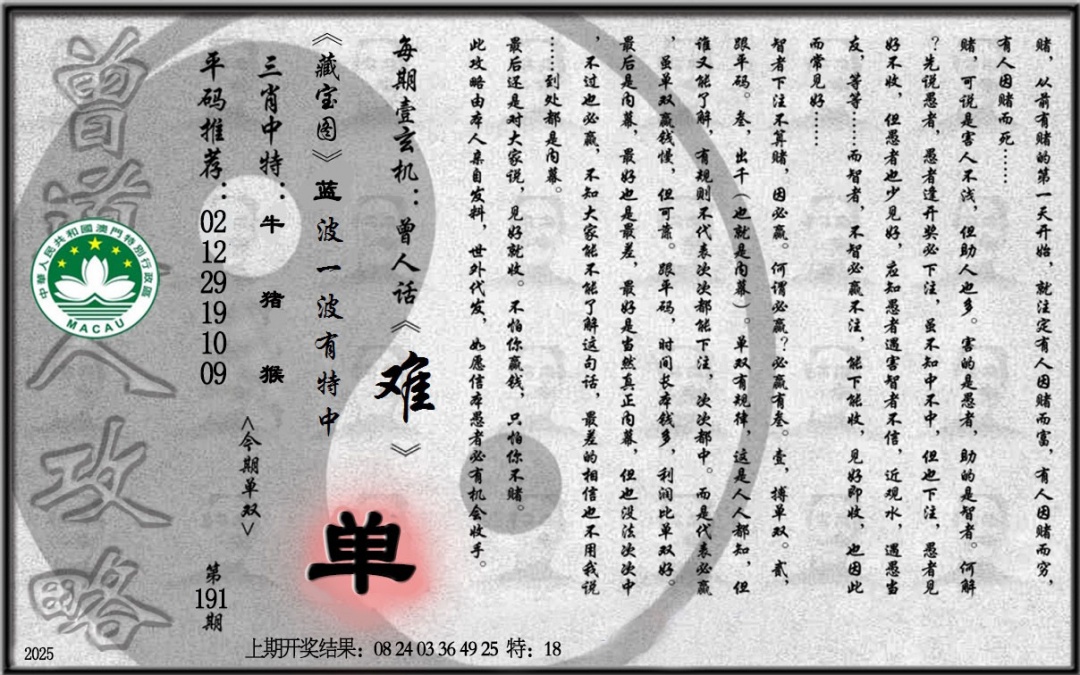 赌，从前有赌的第一天开始，就注定有人因赌而富，有人因赌而穷，
有人因赌而死……
赌，可说是害人不浅，但助人也多。害的是愚者，助的是智者。何解
？先说愚者，愚者逢开奖必下注，虽不知中不中，但也下注，愚者见
好不收，但愚者也少见好，应知愚者遇害智者不信，近观水，遇愚当
友，等等……而智者，不智必赢不注，能下能收，见好即收，也因此
而常见好……
智者下注不算赌，因必赢。何谓必赢？必赢有叁。壹，搏单双。贰，
跟平码。叁，出千（也就是内幕）。单双有规律，这是人人都知，但
谁又能了解，有规则不代表次次都能下注，次次都中。而是代表必赢
，虽单双赢钱慢，但可靠。跟平码，时间长本钱多，利润比单双好。
最后是内幕，最好也是最差，最好是当然真正内幕，但也没法次次中
，不过也必赢，不知大家能不能了解这句话，最差的相信也不用我说
……到处都是内幕。
最后还是对大家说，见好就收。不怕你赢钱，只怕你不赌。
此攻略由本人亲自发料，世外代发，如愿信本愚者必有机会收手。
每期壹玄机：曾人话《难》
《藏宝图》蓝波一波有特中
三肖中特：牛 猪 猴
平码推荐：02 12 29 19 10 09
<今期单双>
单
第191期
曾道人攻略
中華人民共和國澳門特別行政區
MACAU
2025
上期开奖结果：08 24 03 36 49 25 特：18